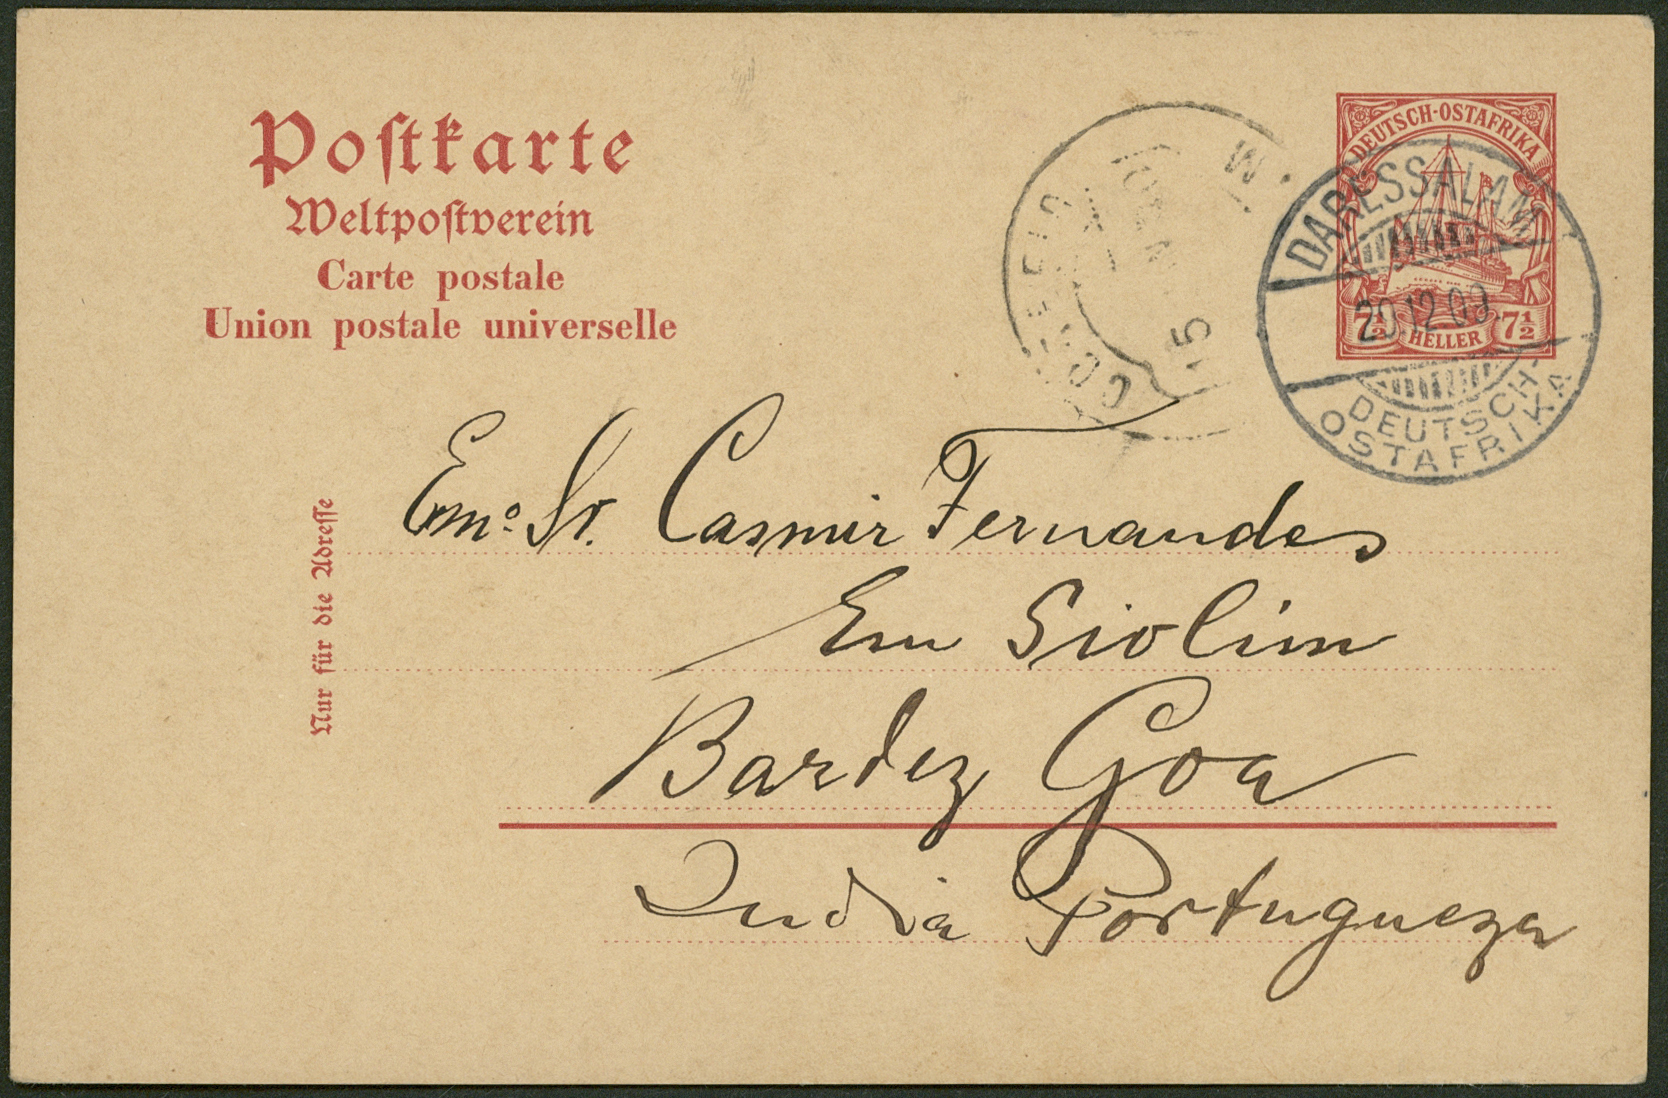 Postkarte
Weltpostverein
Carte postale
Union postale universelle
DEUTSCH-OSTAFRIKA
7½ HELLER 7½
DARESSALAM
20.12.09.
DEUTSCH-
OSTAFRIKA
CORREIO
5
Nur für die Adresse
Exmo. Sr. Casmir Fernandes
Em Siolim
Bardez Goa
India Portugueza